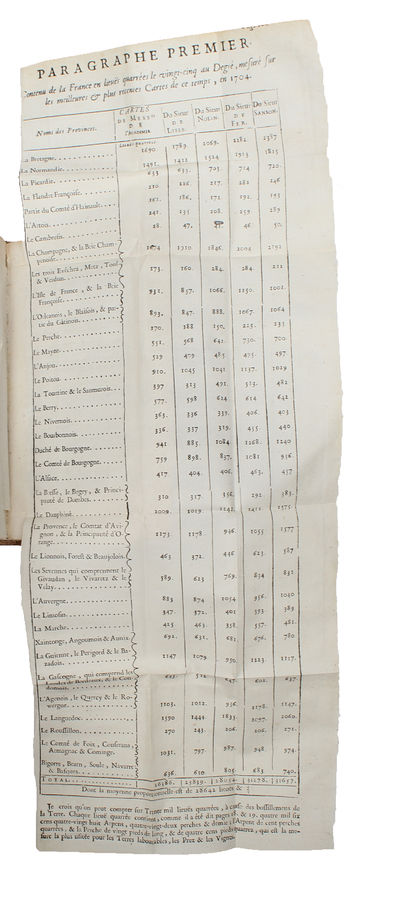 PARAGRAPHE PREMIER.
Contenu de la France en lieuës quarrées de vingt-cinq au Degré, mesuré sur
les meilleures & plus recentes Cartes de ce temps, en 1704.
Noms des Provinces. CARTES DE MESSrs DE L'ACADEMIE Du Sieur DE LISLE. Du Sieur NOLIN. Du Sieur DE FER. Du Sieur SANSON.
La Bretagne 1690 1789. 1069. 1182. 2387
La Normandie 1491. 1412 1524 1913 1815
La Picardie 653 653. 703. 714 720.
La Flandre Françoise 210 226 217. 282 246
Partie du Comté d'Hainault 161. 186. 171 192 195
L'Artois 241. 235 208. 259 289
Le Cambresis 28. 47. 46 50.
La Champagne, & la Brie Champenoise 1674 1910. 1846. 2004 2192
Les trois Evêchez, Metz, Toul & Verdun 173. 160. 284. 284. 212
L'Isle de France, & la Brie Françoise 932. 857. 1066. 1150. 1002.
L'Orleanois, le Blaisois, & partie du Gatinois 893. 847. 888. 1067. 1064
Le Perche 170. 188 150. 225. 235
Le Mayne 551. 568 641. 730. 700
L'Anjou 529 479 485 495. 497
Le Poitou 910. 1045 1041 1137. 1029
La Touraine & le Saumurois 597 513 491. 513. 482
Le Berry 577. 598 624 614 642
Le Nivernois 363. 336 339. 406 403
Le Bourbonnois 336. 357 319. 435 440
Duché de Bourgogne 941 885. 1084 1268. 1240
Le Comté de Bourgogne 759 898. 837. 1081 936
L'Alsace 417 404. 406. 463. 457
La Bresse, le Bugey, & Principauté de Dombes 310 317. 356. 292. 383.
Le Dauphiné 1009. 1019. 1142. 1411 1375.
La Provence, le Comtat d'Avignon, & la Principauté d'Orange 1173 1178 946. 1055 1577
Le Lionnois, Forest & Beaujolois 463 372. 446 623. 587
Les Sevennes qui comprennent le Givaudan, le Vivaretz & le Velay 589. 623 769. 834 832
L'Auvergne 883 874 1054 956. 1040
Le Limosin 347. 372. 401 593 389
La Marche 425 463. 358 557. 481.
Xaintonge, Angoumois & Aunix 692. 631. 681 676. 780
La Guienne, le Perigord & le Bazadois 1147 1079. 950. 1223. 1117.
La Gascogne, qui comprend les Landes de Bordeaux, & le Condomois 512 547. 602. 637.
L'Agenois, le Quercy & le Rovergne 1103. 1012. 936. 1178. 1147.
Le Languedoc 1590 1444. 1833. 1097. 2060.
Le Roussillon 270 243. 206. 206. 272.
Le Comté de Foix, Couserans, Armagnac & Cominge 1031. 797 987. 948 974.
Bigorre, Bearn, Soule, Navarre & Basques 636. 630 805. 683 740.
TOTAL 26386. 25839. 28054. 31278. 31657.
Dont la moyenne proportionnelle est de 28642 lieuës
Je crois qu'on peut compter sur Trente mil lieuës quarrées, à cause des bossillemens de
la Terre. Chaque lieuë quarrée contient, comme il a été dit pages 18 & 19. quatre mil six
cens quatre-vingt huit Arpens, quatre-vingt-deux perches & demie ; l'Arpent de cent perches
quarrées, & la Perche de vingt pieds de long, & de quatre cens pieds quarrez, qui est la mesure la plus usitée pour les Terres labourables, les Prez & les Vignes.